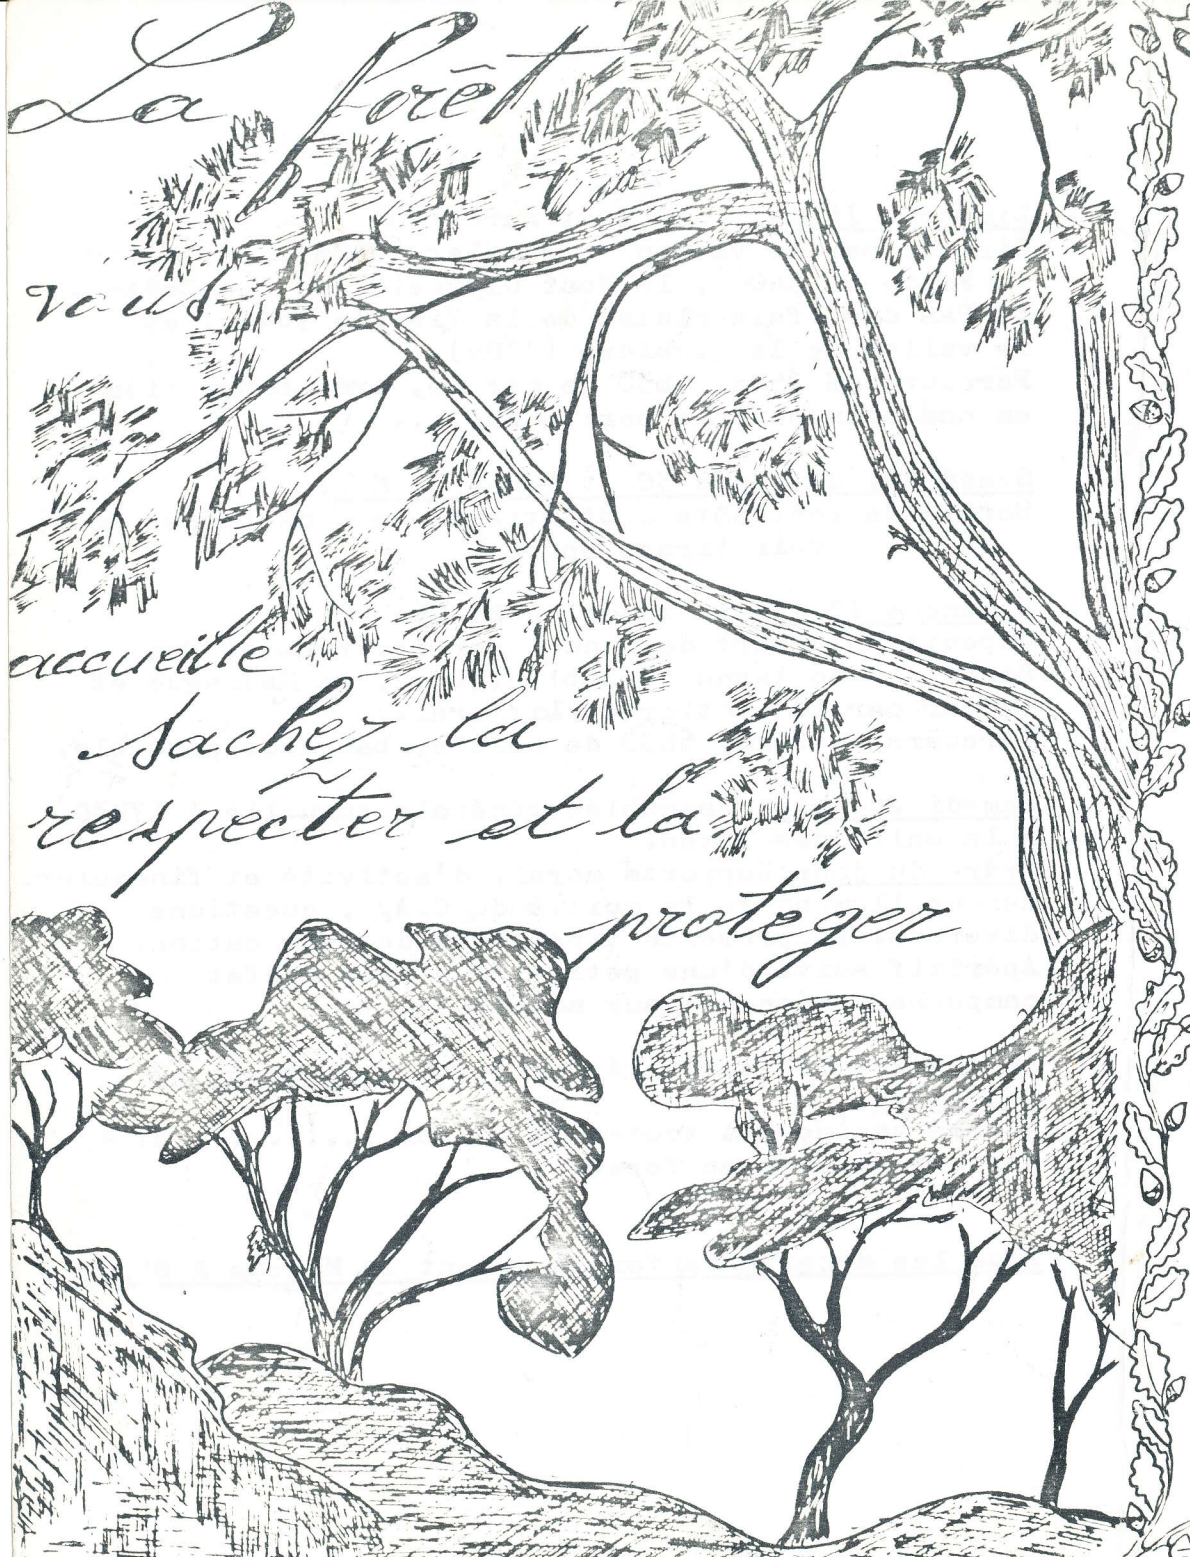 La forêt
vous
accueille
sachez la
respécter et la
protéger